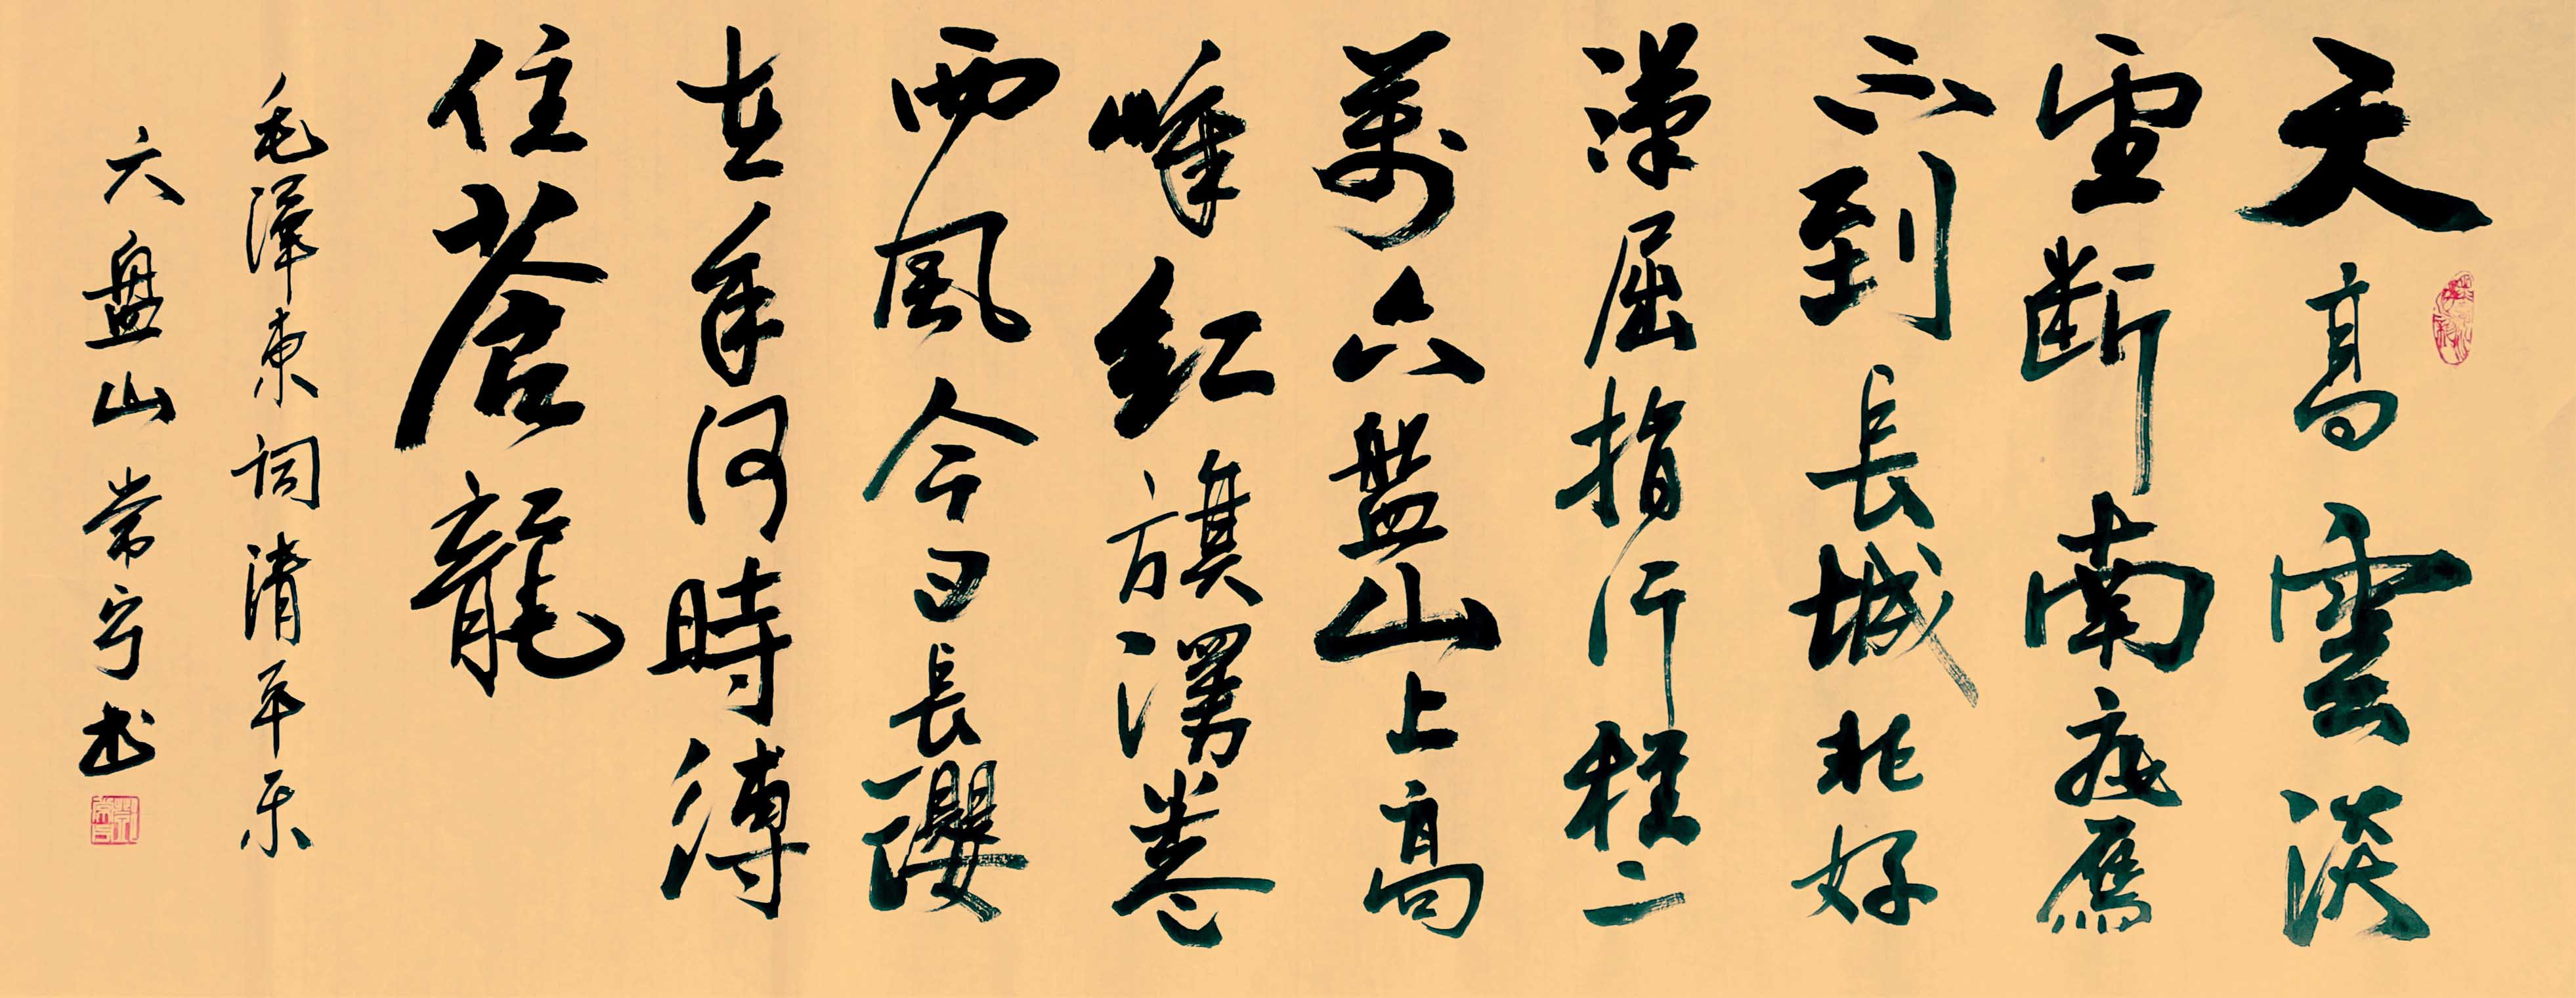 天高雲淡
望断南飛鴈
不到長城非好
漢屈指行程二
萬六盤山上高
峰红旗漫卷
西風今日長纓
在手何時縛
住蒼龍
毛澤東詞清平乐
六盤山 常弓书